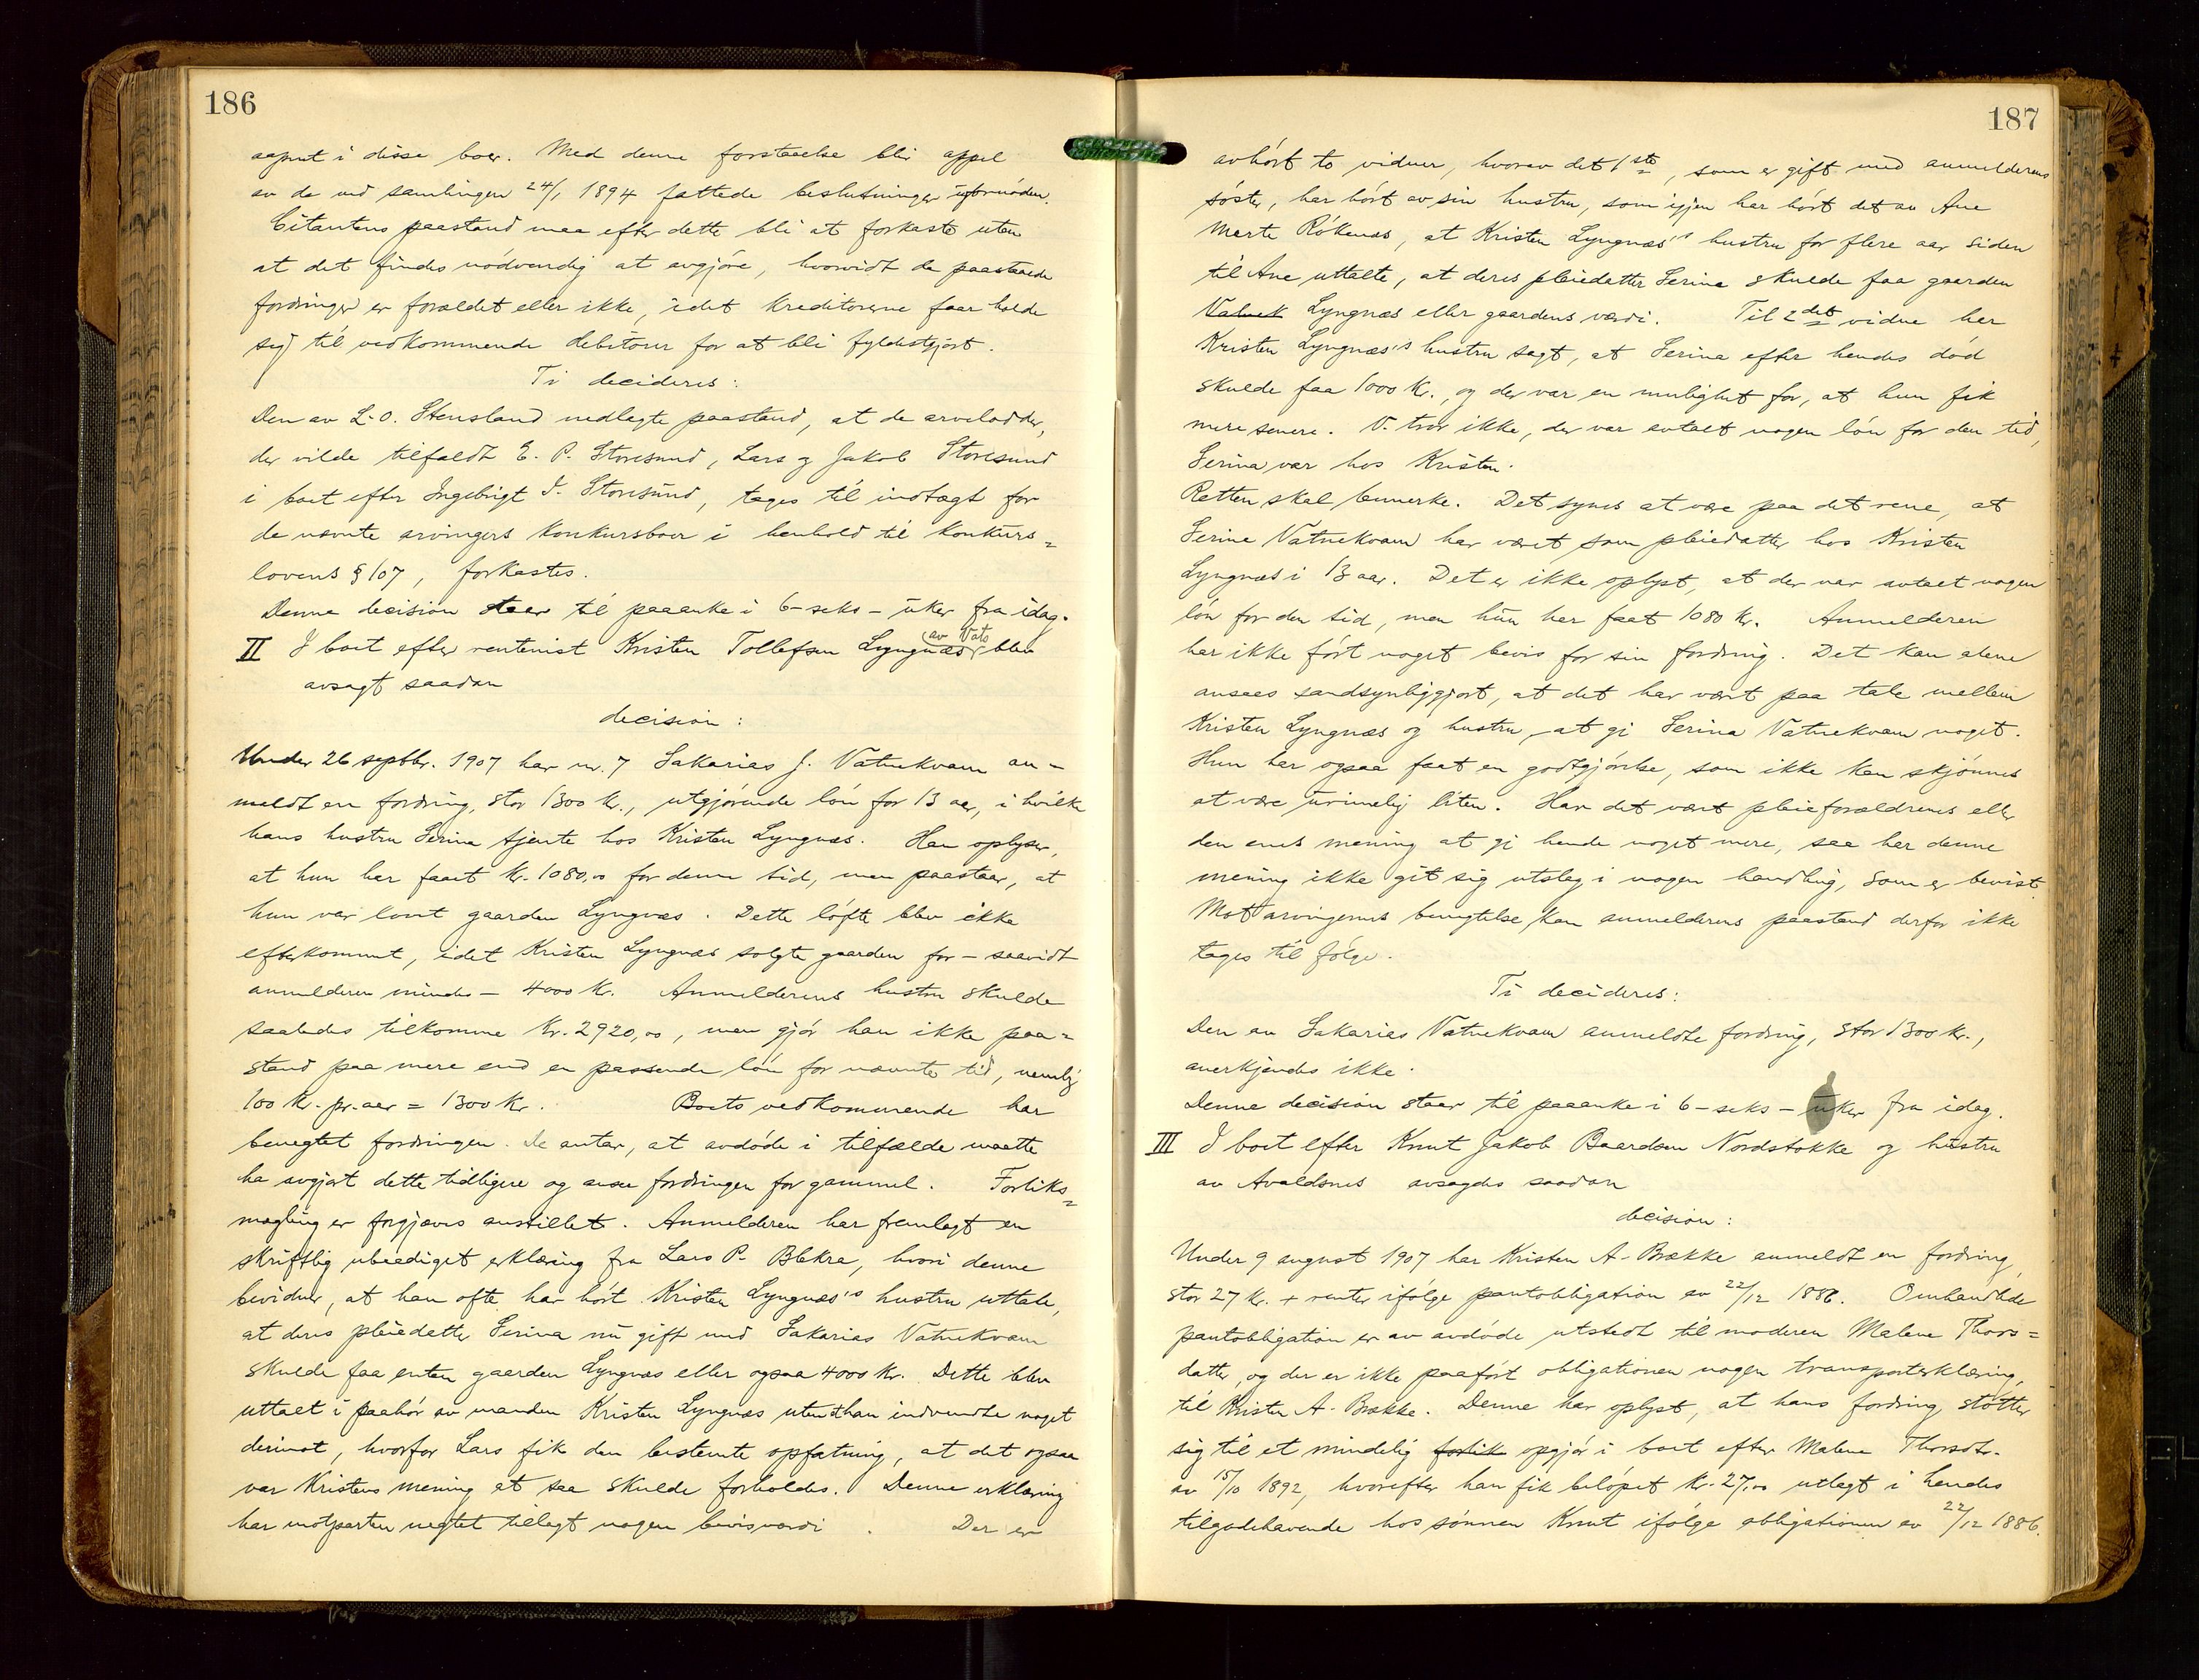 186
aapnet i disse boer. Med denne forstaaelse blir appel
av de ved samlingen 24/1 1894 fattede beslutninger ufornøden.
Citantens paastand maa efter dette bli at forkaste uten
at det findes nødvendig at avgjøre, hvorvidt de paastaaede
fordringer er forældet eller ikke, idet kreditorerne faar holde
sig til vedkommende debitorer for at bli fyldestgjort.
Ti decideres:
Den av L. O. Stensland nedlagte paastand, at de arvelodder,
der vilde tilfaldt E. P. Storesund, Lars og Jakob Storesund
i boet efter Ingebrigt J. Storesund, tages til indtægt for
de nævnte arvingers konkursboer i henhold til konkurs=
lovens § 107, forkastes.
Denne decision staar til paaanke i 6-seks-uker fra idag.
II I boet efter rentenist Kristen Tollefsen Lyngnæs (av Vats) blev
avsagt saadan
decision:
Under 26 septbr. 1907 har nr. 7 Sakarias J. Vatnekvam an-
meldt en fordring, stor 1300 kr., utgjørende løn for 13 aar, i hvilke
hans hustru Serina tjente hos Kristen Lyngnæs. Han oplyser,
at hun har faaet kr. 1080,00 for denne tid, men paastaar, at
hun var lovet gaarden Lyngnæs. Dette løfte blev ikke
efterkommet, idet Kristen Lyngnæs solgte gaarden for - saavidt
anmelderen mindes - 4000 kr. Anmelderens hustru skulde
saaledes tilkomme kr. 2920,00, men gjør han ikke paa=
stand paa mere end en passende løn for nævnte tid, nemlig
100 kr. pr. aar = 1300 kr. Boets vedkommende har
benegtet fordringen. De antar, at avdøde i tilfælde maatte
ha avgjort dette tidligere og anser fordringen for gammel. Forliks=
mægling er forgjæves anstillet. Anmelderen har fremlagt en
skriftlig ubeediget erklæring fra Lars P. Blikra, hvori denne
bevidner, at han ofte har hørt Kristen Lyngnæs's hustru uttale,
at deres pleiedatter Serina nu gift med Sakarias Vatnekvam
skulde faa enten gaarden Lyngnæs eller ogsaa 4000 kr. Dette blev
uttalt i paahør av manden Kristen Lyngnæs uten at han indvendte noget
derimot, hvorfor Lars fik den bestemte opfatning, at det ogsaa
var Kristens mening at saa skulde forholdes. Denne erklæring
har motparten negtet tillagt nogen bevisværdi. Der er
187
avhørt to vidner, hvorav det 1ste, som er gift med anmelderens
søster, har hørt av sin hustru, som igjen har hørt det av Ane
Marte Røkenes, at Kristen Lyngnæs's hustru for flere aar siden
til Ane uttalte, at deres pleiedatter Serina skulde faa gaarden
Vatnek Lyngnæs eller gaardens værdi. Til 2det vidne har
Kristen Lyngnæs's hustru sagt, at Serina efter hendes død
skulde faa 1000 kr., og der var en mulighet for, at hun fik
mere senere. V. tror ikke, der var avtalt nogen løn for den tid,
Serina var hos Kristen.
Retten skal bemerke. Det synes at være paa det rene, at
Serina Vatnekvam har været som pleiedatter hos Kristen
Lyngnæs i 13 aar. Det er ikke oplyst, at der var avtalt nogen
løn for den tid, men hun har faat 1080 kr. Anmelderen
har ikke ført noget bevis for sin fordring. Det kan alene
ansees sandsynliggjort, at det har vært paa tale mellem
Kristen Lyngnæs og hustru, at gi Serina Vatnekvam noget.
Hun har ogsaa faat en godtgjørelse, som ikke kan skjønnes
at være urimelig liten. Har det vært pleieforældrenes eller
den enes mening at gi hende noget mere, saa har denne
mening ikke git sig utslag i nogen handling, som er bevist.
Mot arvingernes benegtelse kan anmelderens paastand derfor ikke
tages til følge.
Ti decideres:
Den av Sakarias Vatnekvam anmeldte fordring, stor 1300 kr.,
anerkjendes ikke.
Denne decision staar til paaanke i 6-seks-uker fra idag.
III I boet efter Knut Jakob Baardsen Nordstokke og hustru
av Avaldsnes avsagdes saadan
decision:
Under 9 august 1907 har Kristen A. Brække anmeldt en fordring,
stor 27 kr. + renter ifølge pantobligation av 22/12 1886. Omhandlede
pantobligation er av avdøde utstedt til moderen Malene Thors=
datter, og der er ikke paaført obligationen nogen transporterklæring
til Kristen A. Brække. Denne har oplyst, at hans fordring støtter
sig til et mindelig forlik opgjør i boet efter Malene Thorsdtr.
av 15/10 1892, hvorefter han fik beløpet kr. 27,00 utlagt i hendes
tilgodehavende hos sønnen Knut ifølge obligationen av 22/12 1886.